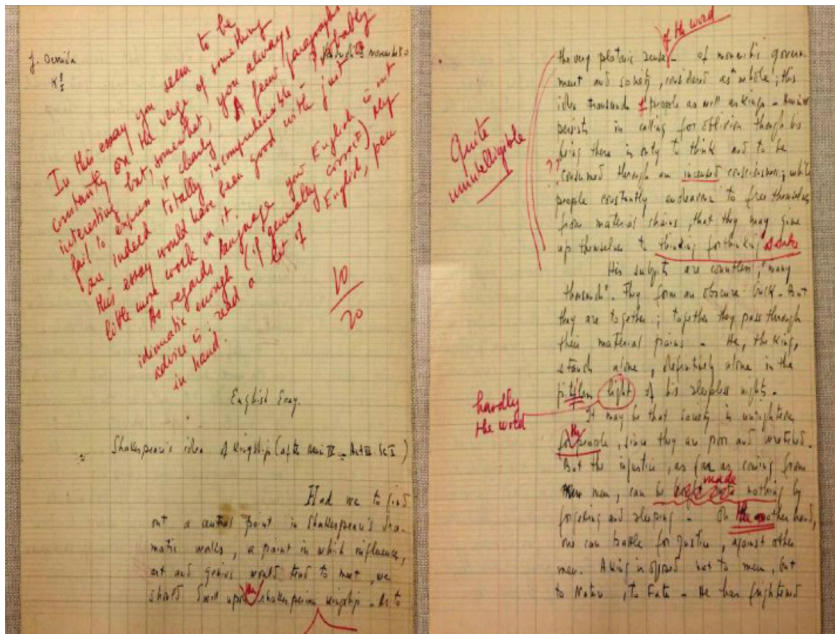 J. Derrida
K I
In this essay you seem to be
constantly on the verge of something
interesting but, somewhat, you always
fail to express it clearly. A few paragraphs
are indeed totally incomprehensible. Probably
this essay would have been good with just a
little more work in it.
As regards language your English is not
idiomatic enough (if generally correct) My
advice is: read a lot of English, pen
in hand.
10
20
English Essay.
Shakespeare's idea of Kingship (after Henri IV - Act III Sc I)
Had we to find
out a central point in Shakespeare's dra-
matic works, a point in which influence,
art and genius would tend to meet, we
should dwell upon the shakespearian kingship. As to
of the word
the very platonic sense - of monarchic govern-
ment and society, considered as a whole; this
idea thousands of people as well as kings -
persists in calling for oblivion though his
being there is only to think and to be
consumed through an incensed consciousness; while
people constantly endeavour to free themselves
from material chains, that they may give
up themselves to thinking for thinking's sake
Quite
unintelligible
??
His subjects are countless, "many
thousand". They form an obscure bulk. But
they are together; together they pass through
their material pains - He, the King,
stands alone, definitively alone in the
pitiless light of his sleepless nights.
hardly
the word
It may be that society is unrighteous
for the people, since they are poor and wretched.
But the injustice, as far as coming from
men, can be made nothing by
forgetting and sleeping - On the other hand,
one can battle for justice, against other
men. A King is opposed not to men, but
to Nature, to Fate - He then frightened